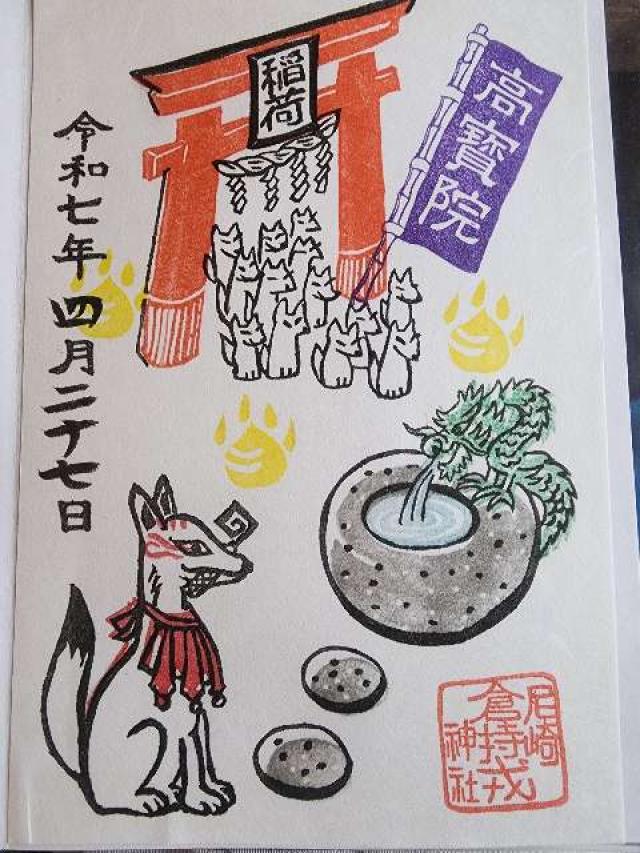 高寶院
稲荷
令和七年四月二十七日
尼崎
倉持戎
神社